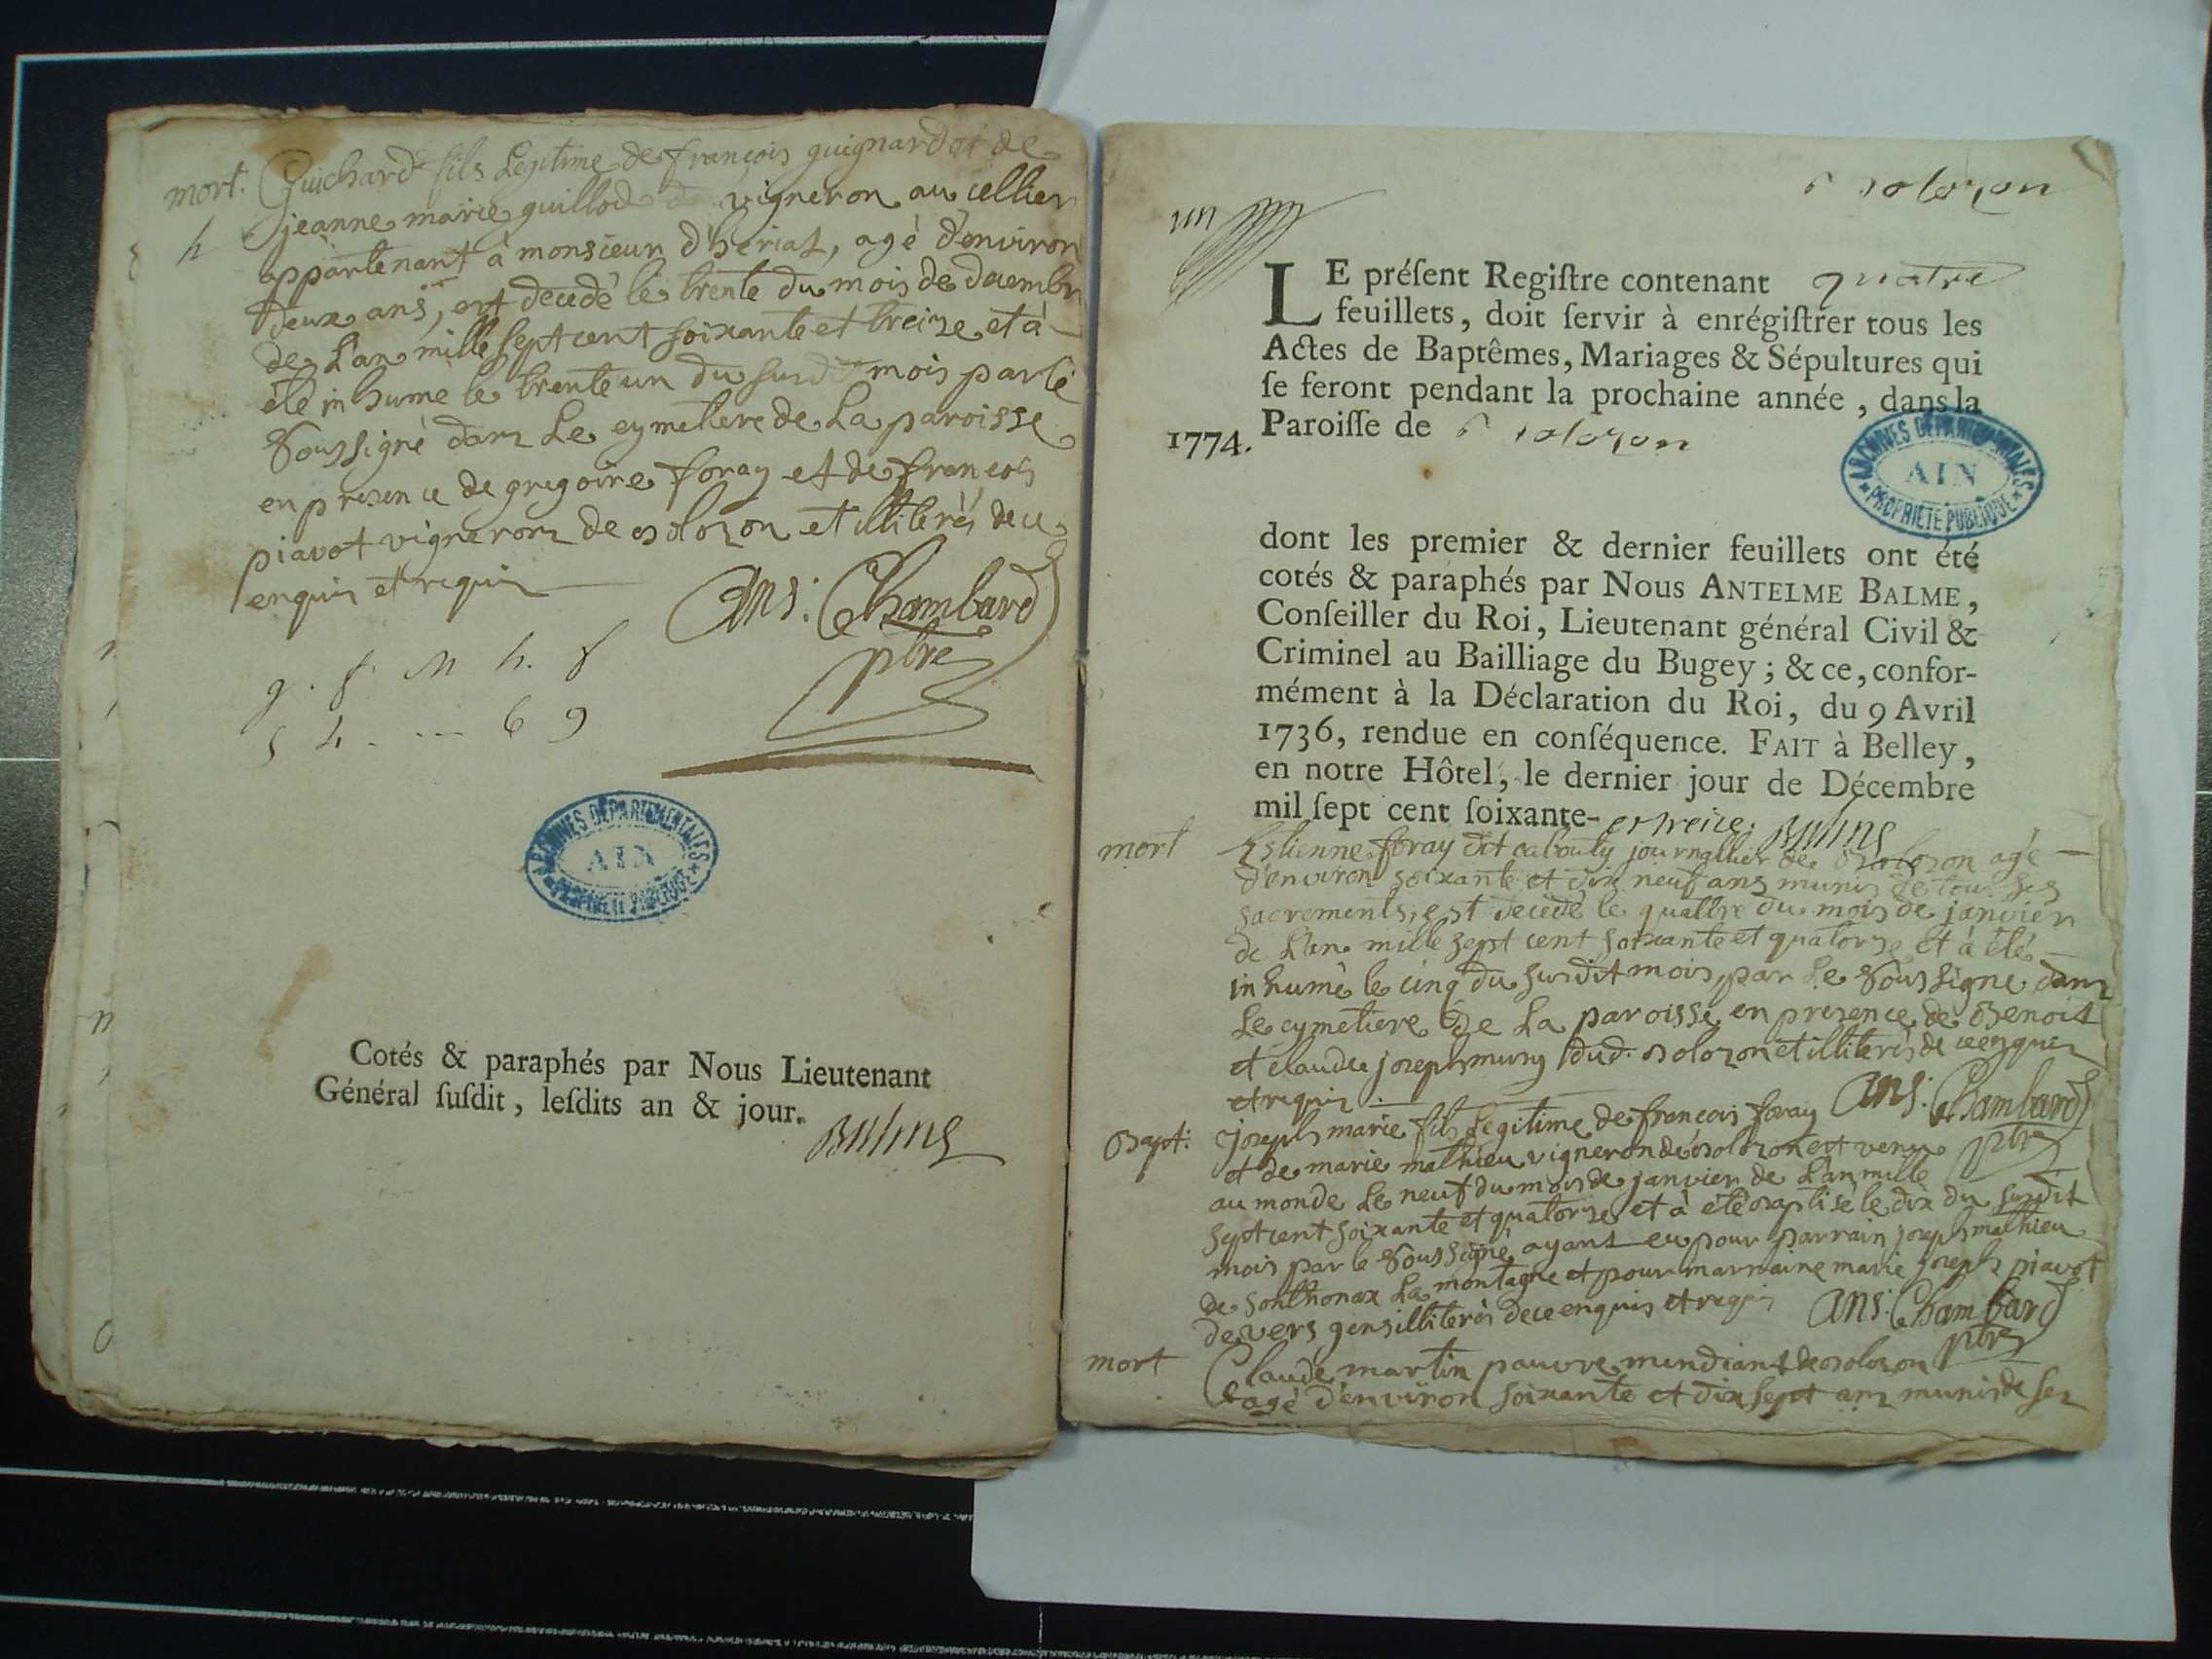 mort. Guichard fils Legitime de françois guignard et de
jeanne marie guillod vigneron au cellier
h appartenant à monsieur d'heriat, agé d'environ
deux ans, est decedé le trente du mois de decembr
de L'an mille sept cent soixante et treize et à
été inhumé le trente un du surdt mois par le
soussigné dans Le cymetiere de La paroisse
en presence de gregoire foray et de françois
piavot vignerons de bolozon et illiterés de ce
enquis et requis
Ans: Chambard
ptre
g. f m h. f
s h. ... 6 9
ARCHIVES DÉPARTEMENTALES
AIN
PROPRIETE PUBLIQUE
Cotés & paraphés par Nous Lieutenant
Général suſdit, leſdits an & jour.
Balme
Bolozon
un
LE préſent Regiſtre contenant quatre
feuillets, doit ſervir à enrégiſtrer tous les
Actes de Baptêmes, Mariages & Sépultures qui
ſe feront pendant la prochaine année, dans la
1774. Paroiſſe de Bolozon
ARCHIVES DÉPARTEMENTALES
AIN
PROPRIETE PUBLIQUE
dont les premier & dernier feuillets ont été
cotés & paraphés par Nous ANTELME BALME,
Conſeiller du Roi, Lieutenant général Civil &
Criminel au Bailliage du Bugey; & ce, confor-
mément à la Déclaration du Roi, du 9 Avril
1736, rendue en conſéquence. FAIT à Belley,
en notre Hôtel, le dernier jour de Décembre
mil ſept cent ſoixante- et treize. Balme
mort Estienne foray dit cabouty journallier de Bolozon agé
d'environ soixante et dix neuf ans munis de tous ses
sacrements, est decedé le quattre du mois de janvier
de L'an mille sept cent soixante et quatorze et à été
inhumé le cinq du surdit mois, par Le soussigné dans
Le cymetiere de La paroisse en presence de Benoit
et claude joseph muny dud. bolozon et illiterés de ce enquis
et requis. Ans: Chambard
ptre
Bapt: joseph marie fils Legitime de françois foray
et de marie mathieu vigneron de bolozon est venu
au monde Le neuf du mois de janvier de L'an mille
sept cent soixante et quatorze et à été baptisé le dix du surdit
mois par le soussigné ayant eu pour parrain joseph mathieu
de sonthonax La montagne et pour marraine marie joseph piavot
de vers gens illiterés de ce enquis et requis Ans: Chambard
ptre
mort Claude martin pauvre mendiant de bolozon
agé d'environ soixante et dix sept ans munis de ses